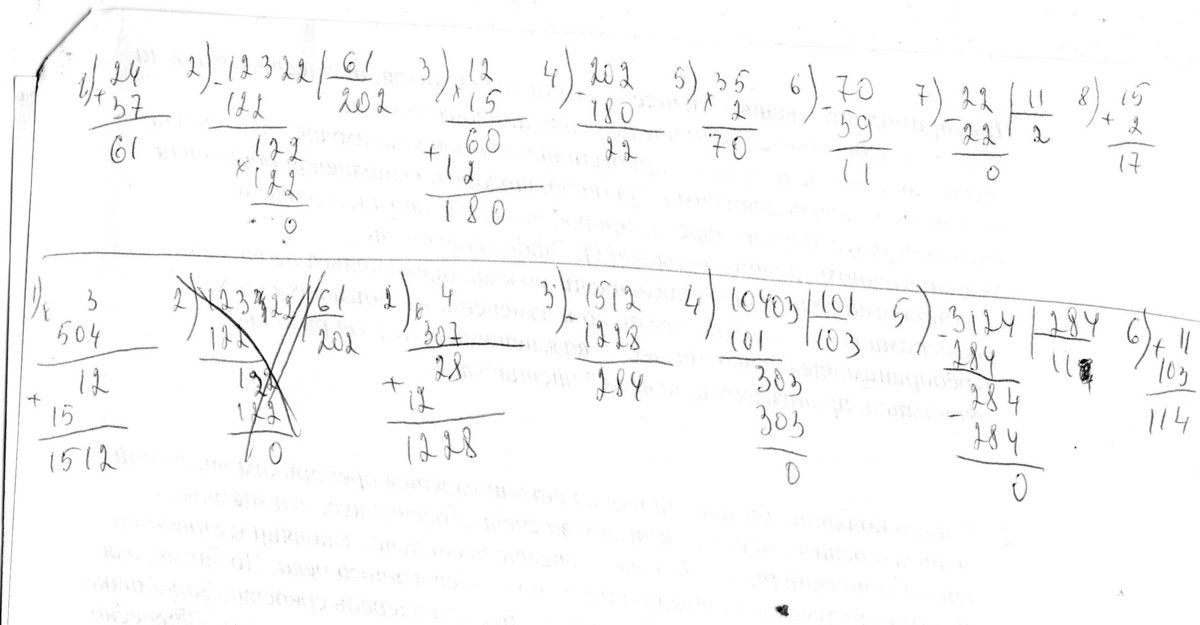 1) 24 2) 12322 | 61 3) 12 4) 202 5) 35 6) 70 7) 22 | 11 8) 15
+ 37 - 122 202 x 15 - 180 x 2 - 59 - 22 2 + 2
61 122 60 22 70 11 0 17
x 122 + 12
0 180
1) 3 2) 12322 | 61 2) 4 3) 1512 4) 10403 | 101 5) 3124 | 284 6) 11
x 504 122 202 x 307 - 1228 101 103 - 284 11 + 103
12 122 28 284 303 284 114
+ 15 122 + 12 303 - 284
1512 0 1228 0 0